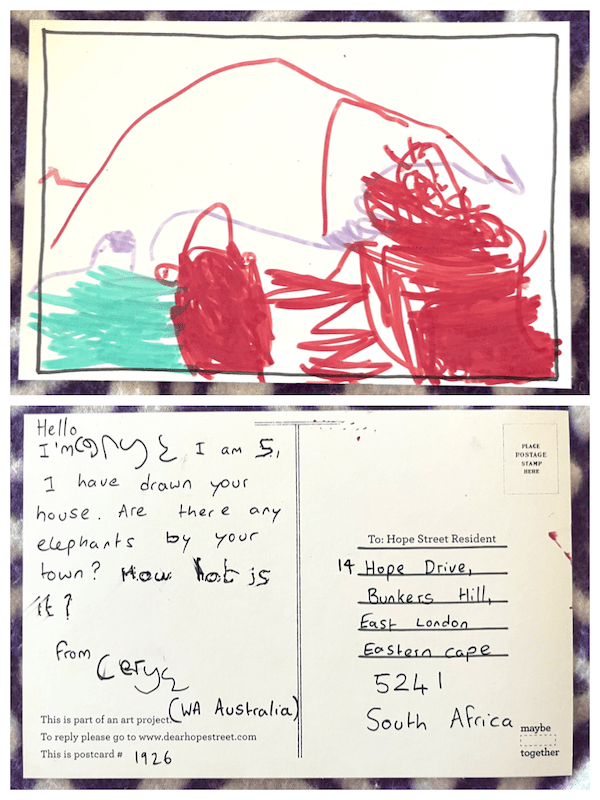 Hello
I'm Cerys I am 5,
I have drawn your
house. Are there any
elephants by your
town? How hot is
it?
From
Cerys
(WA Australia)
This is part of an art project.
To reply please go to www.dearhopestreet.com
This is postcard # 1926
PLACE
POSTAGE
STAMP
HERE
To: Hope Street Resident
14 Hope Drive,
Bunkers Hill,
East London
Eastern cape
5241
South Africa
maybe
together